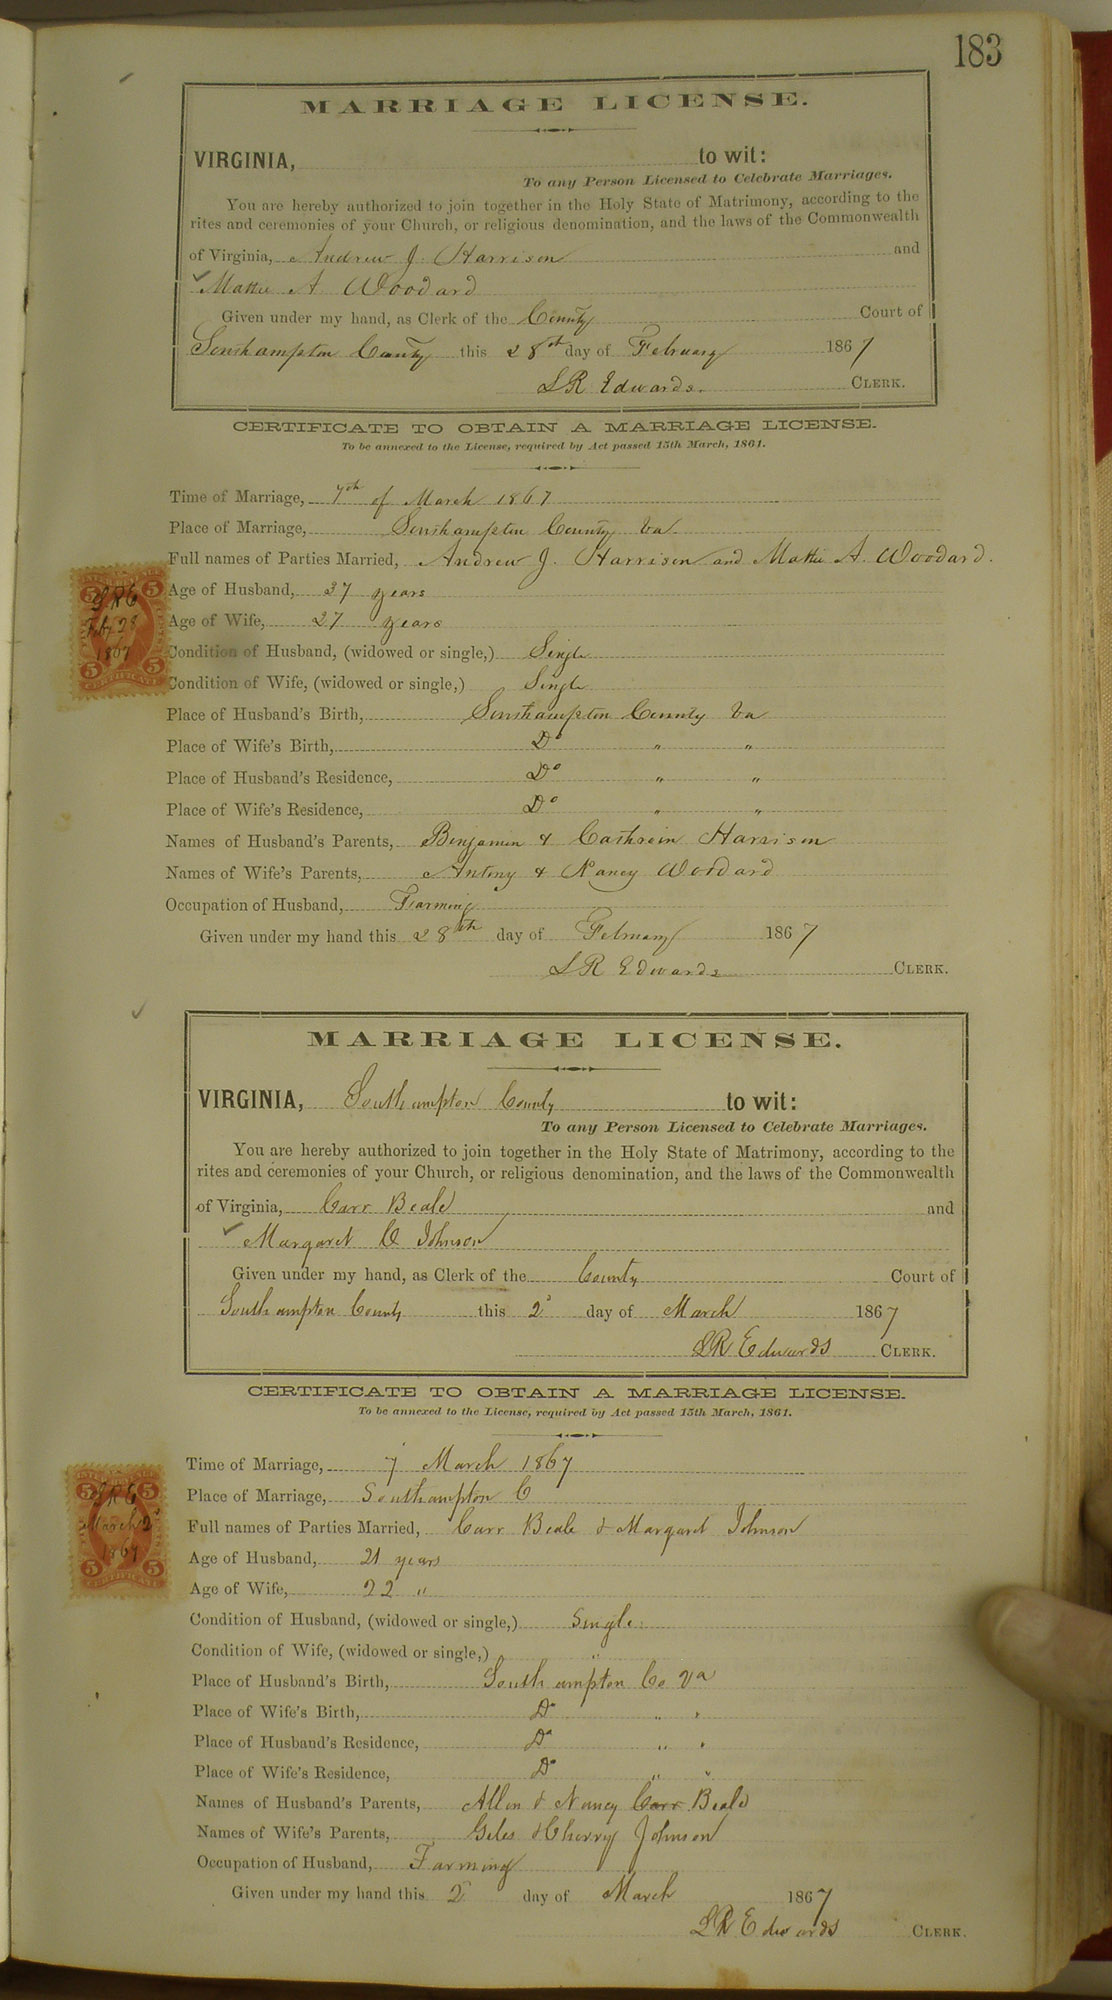 183
MARRIAGE LICENSE.
VIRGINIA, to wit:
To any Person Licensed to Celebrate Marriages.
You are hereby authorized to join together in the Holy State of Matrimony, according to the
rites and ceremonies of your Church, or religious denomination, and the laws of the Commonwealth
of Virginia, Andrew J. Harrison and
Mattie A Woodard
Given under my hand, as Clerk of the County Court of
Southampton County this 28th day of February 1867
LR Edwards. CLERK.
CERTIFICATE TO OBTAIN A MARRIAGE LICENSE.
To be annexed to the License, required by Act passed 15th March, 1861.
Time of Marriage, 7th of March 1867
Place of Marriage, Southampton County Va
Full names of Parties Married, Andrew J. Harrison and Mattie A. Woodard.
Age of Husband, 37 years
Age of Wife, 27 years
Condition of Husband, (widowed or single,) Single
Condition of Wife, (widowed or single,) Single
Place of Husband's Birth, Southampton County Va
Place of Wife's Birth, Do " "
Place of Husband's Residence, Do " "
Place of Wife's Residence, Do " "
Names of Husband's Parents, Benjamin & Cathrein Harrison
Names of Wife's Parents, Antony & Nancy Woodard
Occupation of Husband, Farming
Given under my hand this 28th day of February 1867
LR Edwards CLERK.
5 5
LRE
Feb 28
1867
5 5
CERTIFICATE
MARRIAGE LICENSE.
VIRGINIA, Southampton County to wit:
To any Person Licensed to Celebrate Marriages.
You are hereby authorized to join together in the Holy State of Matrimony, according to the
rites and ceremonies of your Church, or religious denomination, and the laws of the Commonwealth
of Virginia, Carr Beale and
Margaret Johnson
Given under my hand, as Clerk of the County Court of
Southampton County this 2d day of March 1867
LR Edwards CLERK.
CERTIFICATE TO OBTAIN A MARRIAGE LICENSE.
To be annexed to the License, required by Act passed 15th March, 1861.
Time of Marriage, 7 March 1867
Place of Marriage, Southampton C
Full names of Parties Married, Carr Beale & Margaret Johnson
Age of Husband, 21 years
Age of Wife, 22 "
Condition of Husband, (widowed or single,) Single
Condition of Wife, (widowed or single,) "
Place of Husband's Birth, Southampton Co Va
Place of Wife's Birth, Do " "
Place of Husband's Residence, Do " "
Place of Wife's Residence, Do " "
Names of Husband's Parents, Allen & Nancy Carr Beale
Names of Wife's Parents, Giles & Cherry Johnson
Occupation of Husband, Farming
Given under my hand this 2 day of March 1867
LR Edwards CLERK.
5 5
LRE
March 2d
1867
5 5
CERTIFICATE